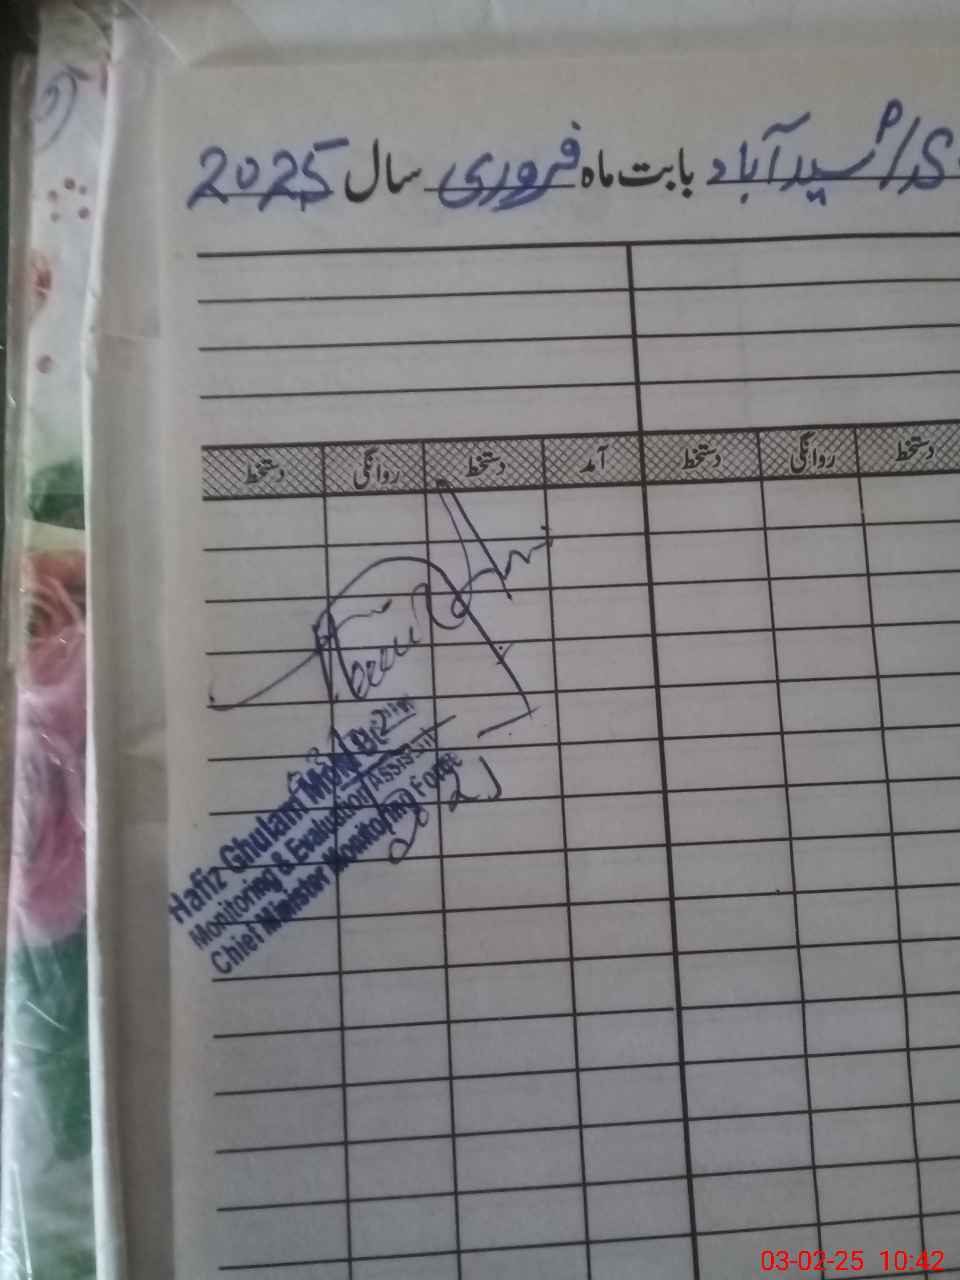 سید آباد بابت ماہ فروری سال 2025
دستخط روانگی دستخط آمد دستخط روانگی دستخط
Hafiz Ghulam
Monitoring & Evaluation Assistant
Chief Minister Monitoring Force
03-02-25 10:42